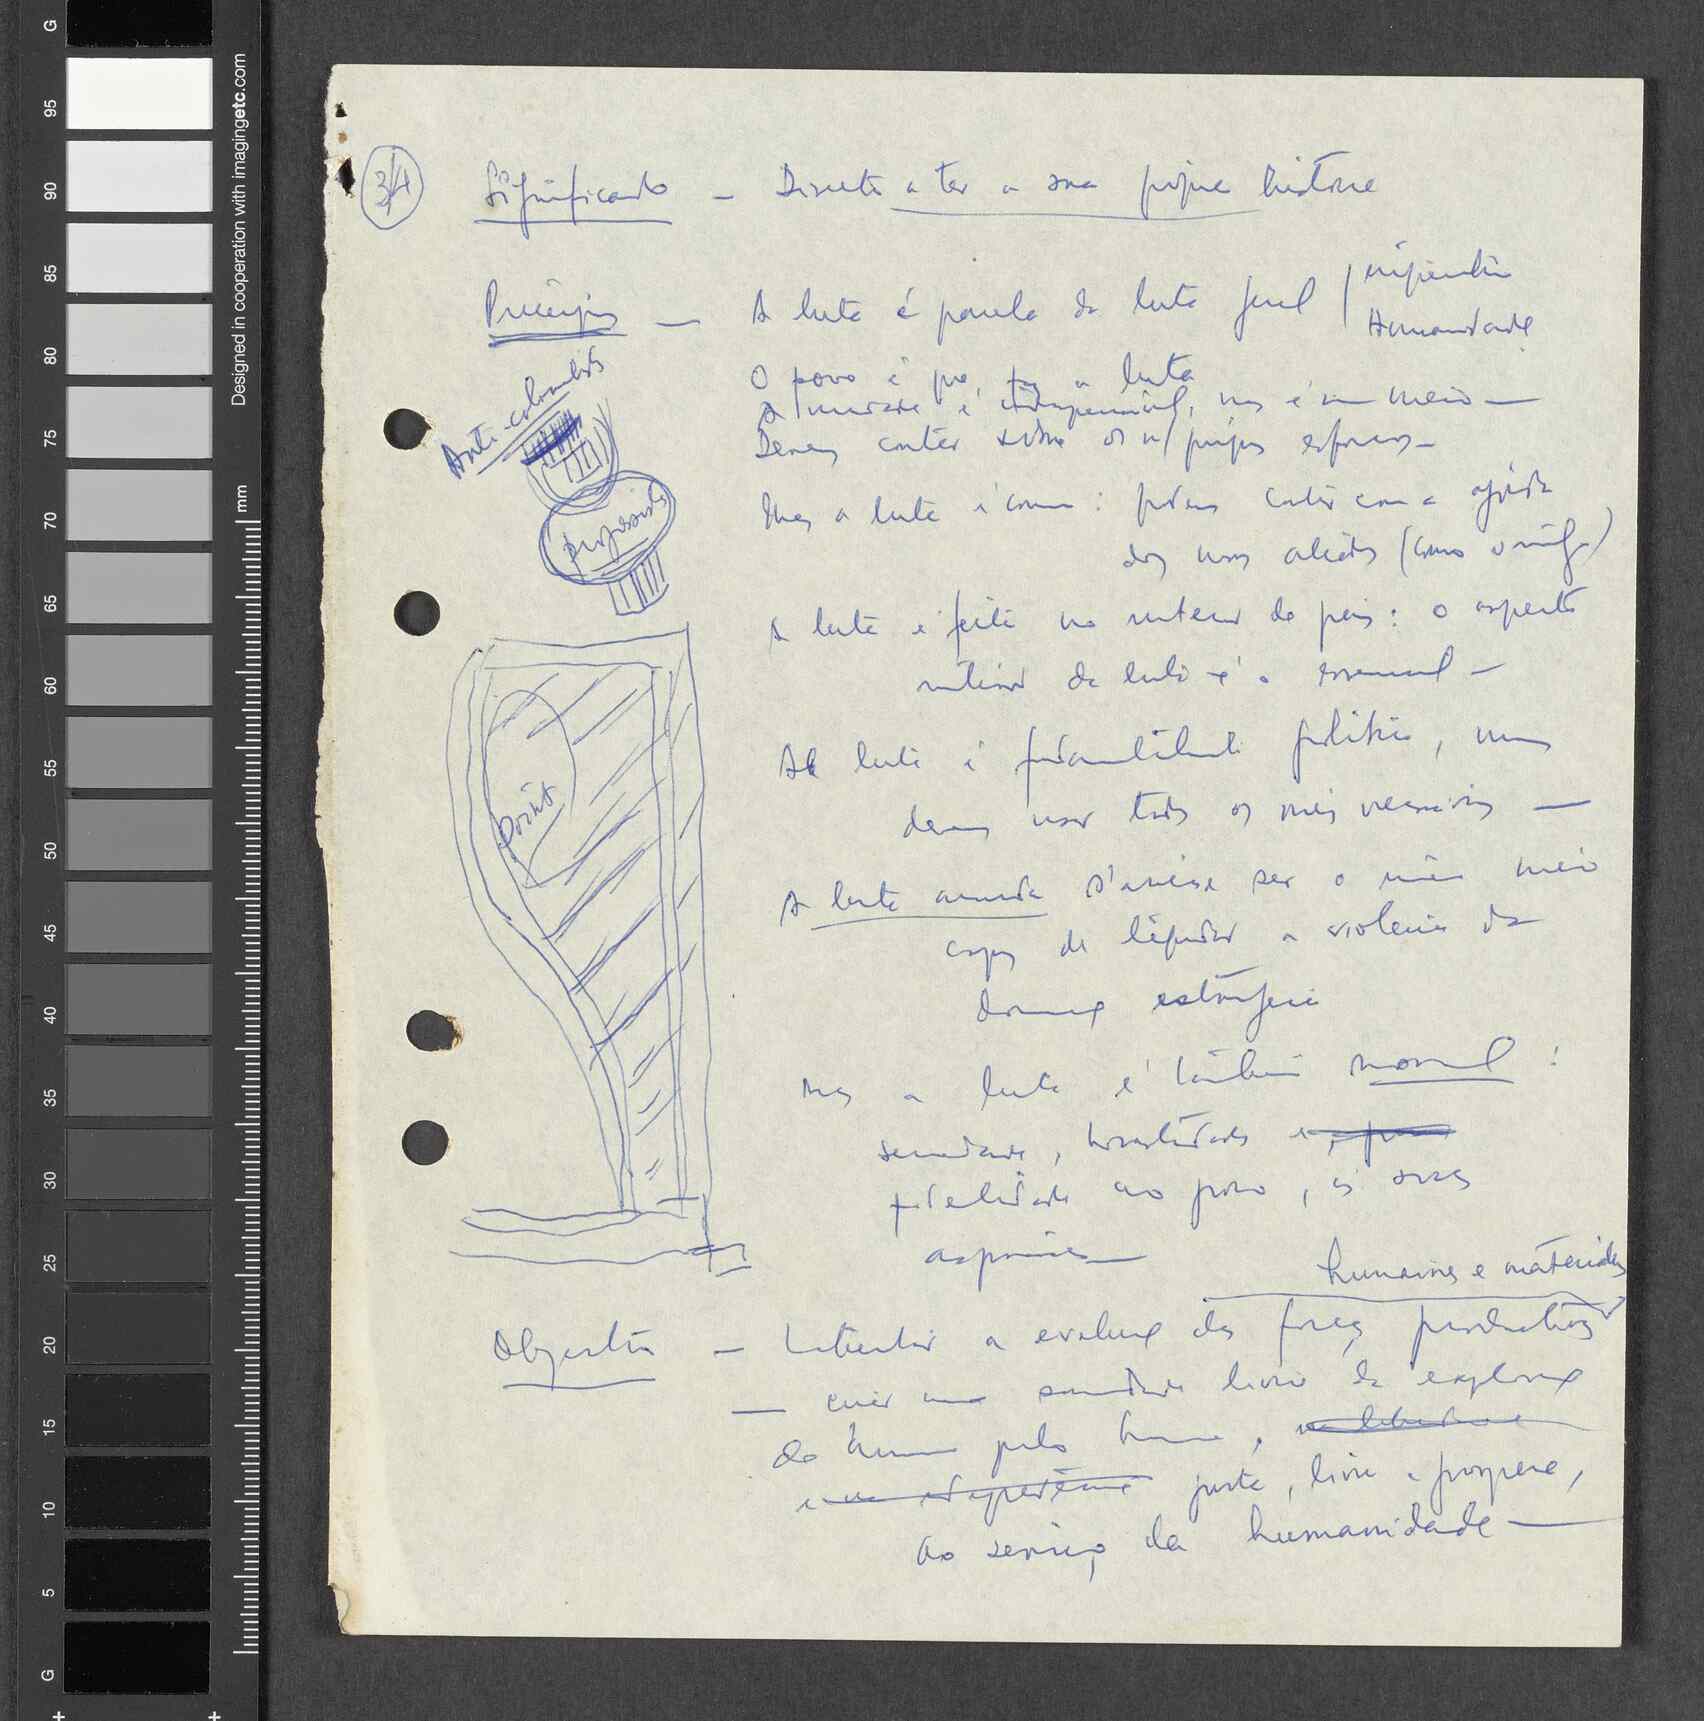 34
Significado — Direito a ter a sua própria história
Princípios — A luta é parcela da luta geral
Humanidade
Anti-colonialista
O povo é que faz a luta
A unidade é indispensável, mas é um meio —
Devemos contar sobre os n/ próprios esforços —
progressista
Mas a luta é comum: podemos contar com a ajuda
dos nossos aliados (como o inimigo)
A luta é feita no interior do país: o aspecto
interior da luta é o essencial —
A luta é fundamentalmente política, mas
devemos usar todos os meios necessários —
point
A luta armada ser o único meio
capaz de liquidar a violência da
dominação estrangeira
Mas a luta é também moral:
seriedade, honestidade e
fidelidade ao povo, às suas
aspirações —
humanas e materiais
Objectivo — Libertar a evolução das forças productivas
— criar uma sociedade livre da exploração
do homem pelo homem,
justa, livre e próspera,
ao serviço da humanidade —
G
95
90
85
80
75
70
65
60
55
50
45
40
35
30
25
20
15
10
5
G
Designed in cooperation with imagingetc.com
mm